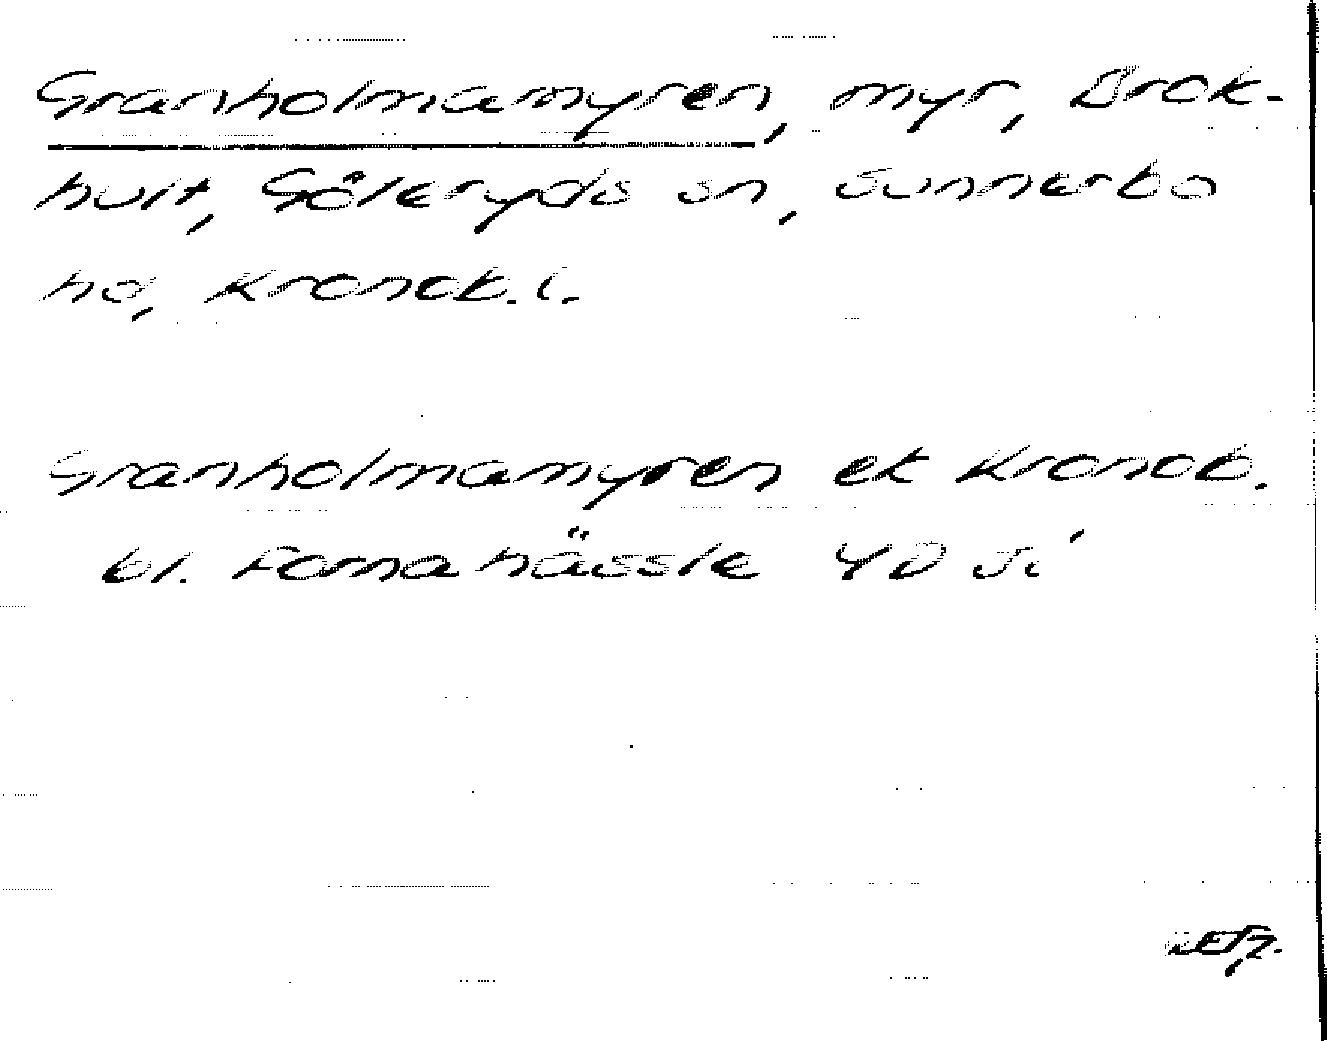 Granholmamyren, myr, Brok-
hult, Göteryds sn, Sunnerbo
hd, Kronob. l.
Granholmamyren ek Kronob.
bl. Fornahässle 4D Si